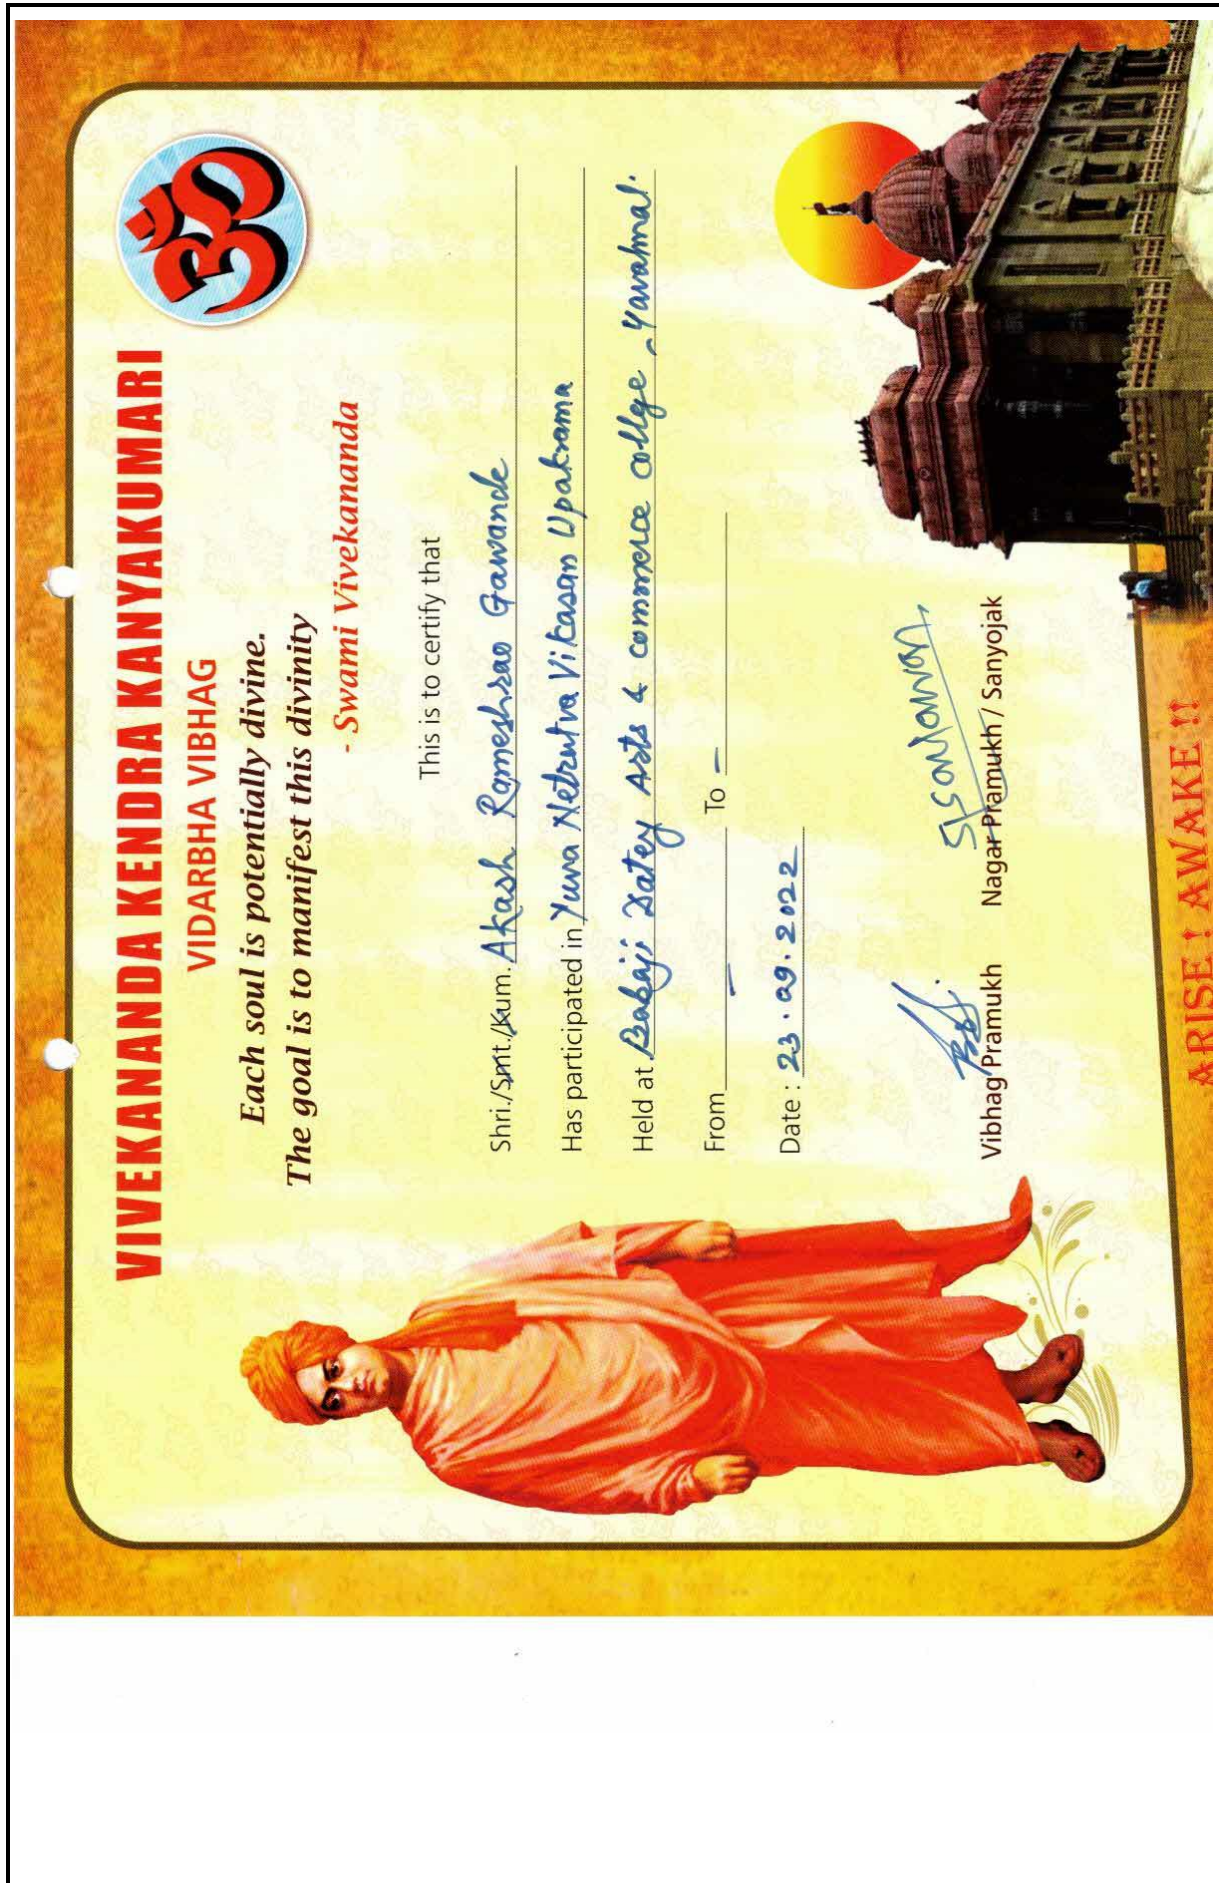 VIVEKANANDA KENDRA KANYAKUMARI
ॐ
VIDARBHA VIBHAG
Each soul is potentially divine.
The goal is to manifest this divinity
- Swami Vivekananda
This is to certify that
Shri./Smt./Kum. Akash Rameshrao Gawande
Has participated in Yuva Netrutva Vikasan Upakrama
Held at Babaji Datey Arts & commerce college, Yavatmal.
From – To –
Date : 23.09.2022
Vibhag Pramukh Nagar Pramukh / Sanyojak
ARISE ! AWAKE !!